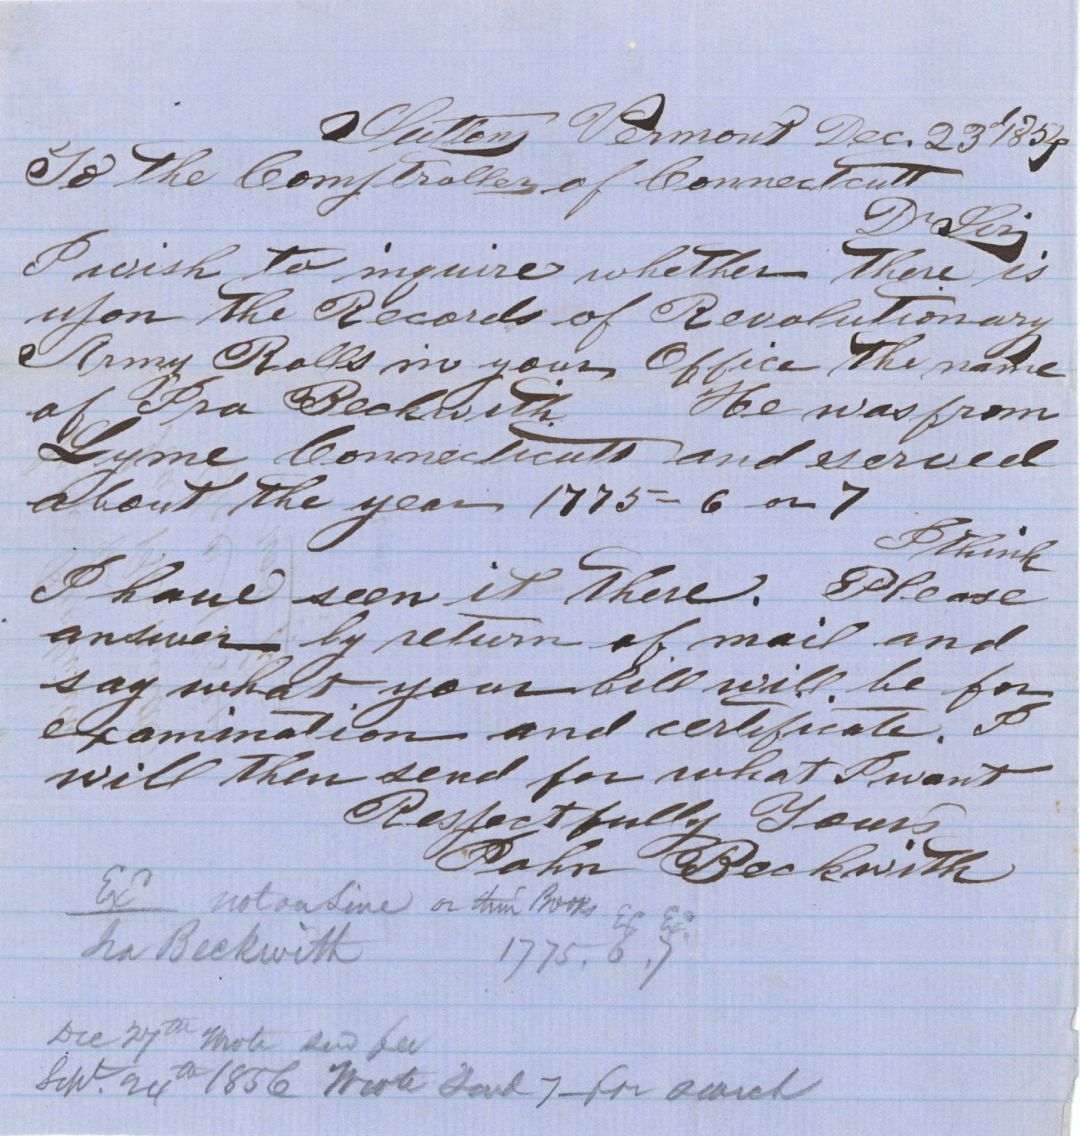 Sutton Vermont Dec. 23d 1854
To the Comptroller of Connecticutt
Dr Sir
I wish to inquire whether there is
upon the Records of Revolutionary
Army Rolls in your Office the name
of Ira Beckwith. He was from
Lyme Connecticutt and served
about the year 1775-6 or 7
I think
I have seen it there. Please
answer by return of mail and
say what your bill will be for
examination and certificate. I
will then send for what I want
Respectfully Yours
John Beckwith
Exd not on Line or their Books
Ira Beckwith 1775. 6. 7
Exd Exd
Dec 27th Wrote send fee
Sept. 24th 1856 Wrote Send for search